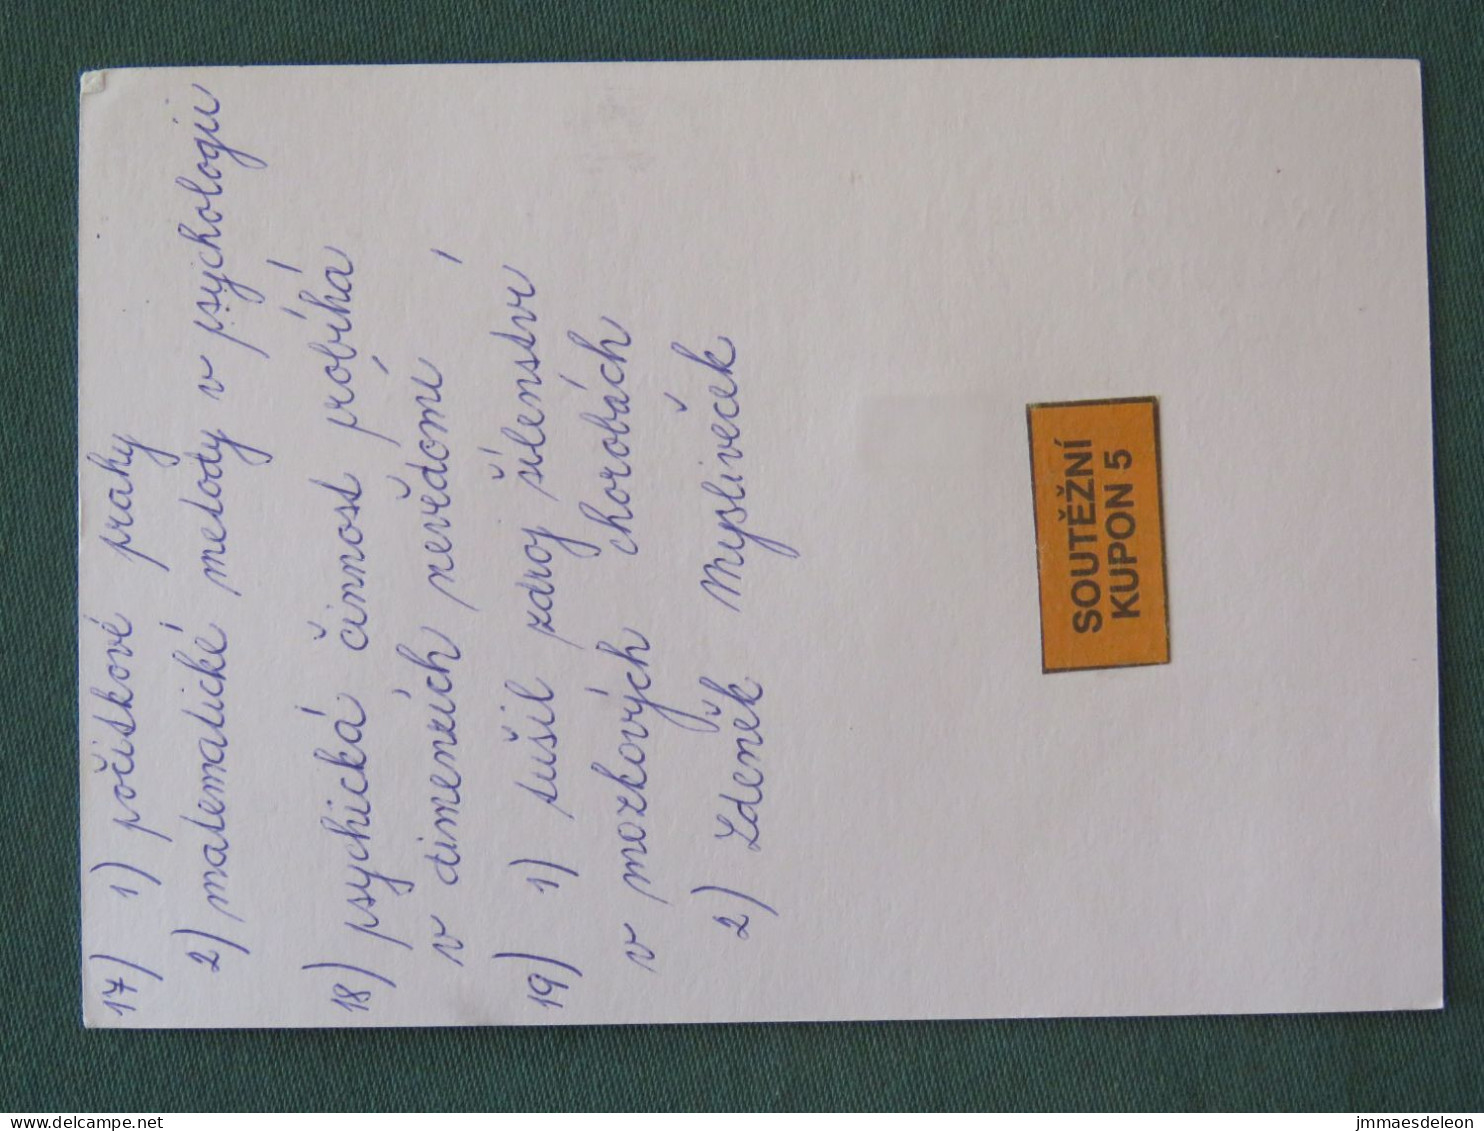 17) 1) počitkové prahy
2) matematické metody v psychologii
18) psychická činnost probíhá
v dimenzích nevědomí
19) 1) tušil zdroj šílenství
v mozkových chorobách
2) Zdeněk Mysliveček
SOUTĚŽNÍ
KUPON 5
www.delcampe.net
jmmaesdeleon